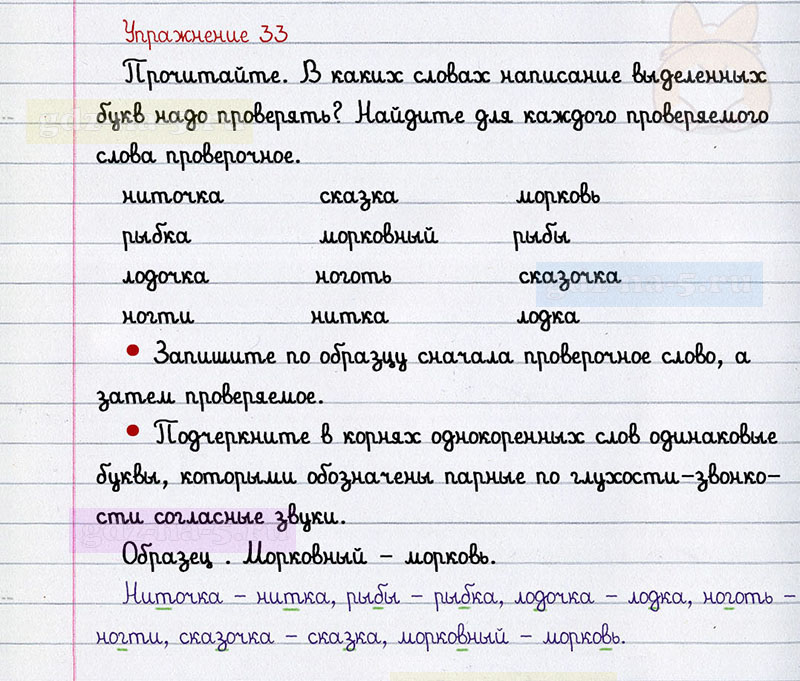 Упражнение 33
Прочитайте. В каких словах написание выделенных
букв надо проверять? Найдите для каждого проверяемого
слова проверочное.
ниточка сказка морковь
рыбка морковный рыбы
лодочка ноготь сказочка
ногти нитка лодка
• Запишите по образцу сначала проверочное слово, а
затем проверяемое.
• Подчеркните в корнях однокоренных слов одинаковые
буквы, которыми обозначены парные по глухости-звонко-
сти согласные звуки.
Образец . Морковный - морковь.
Ниточка - нитка, рыбы - рыбка, лодочка - лодка, ноготь -
ногти, сказочка - сказка, морковный - морковь.